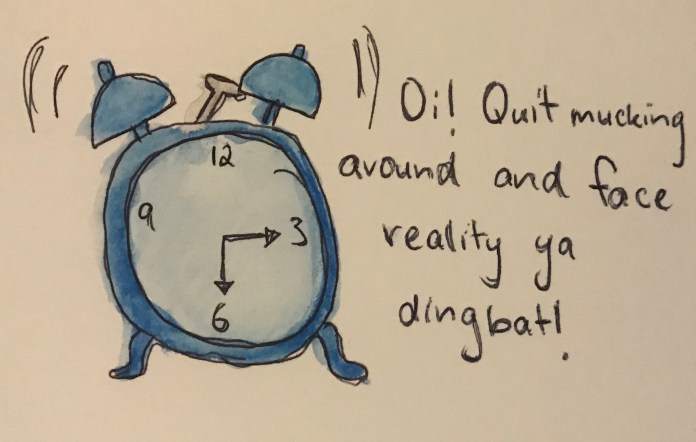 Oi! Quit mucking
around and face
reality ya
dingbat!
12
9
3
6